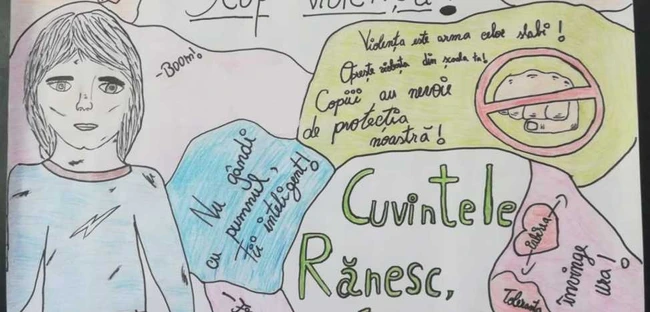 Stop violența!
-Boom!
Violența este arma celor slabi!
Oprește violența din școala ta!
Copiii au nevoie
de protecția
noastră!
Nu gândi
cu pumnul,
fii inteligent!
Cuvintele
Rănesc,
Iubirea
învinge
ura!
Toleranța